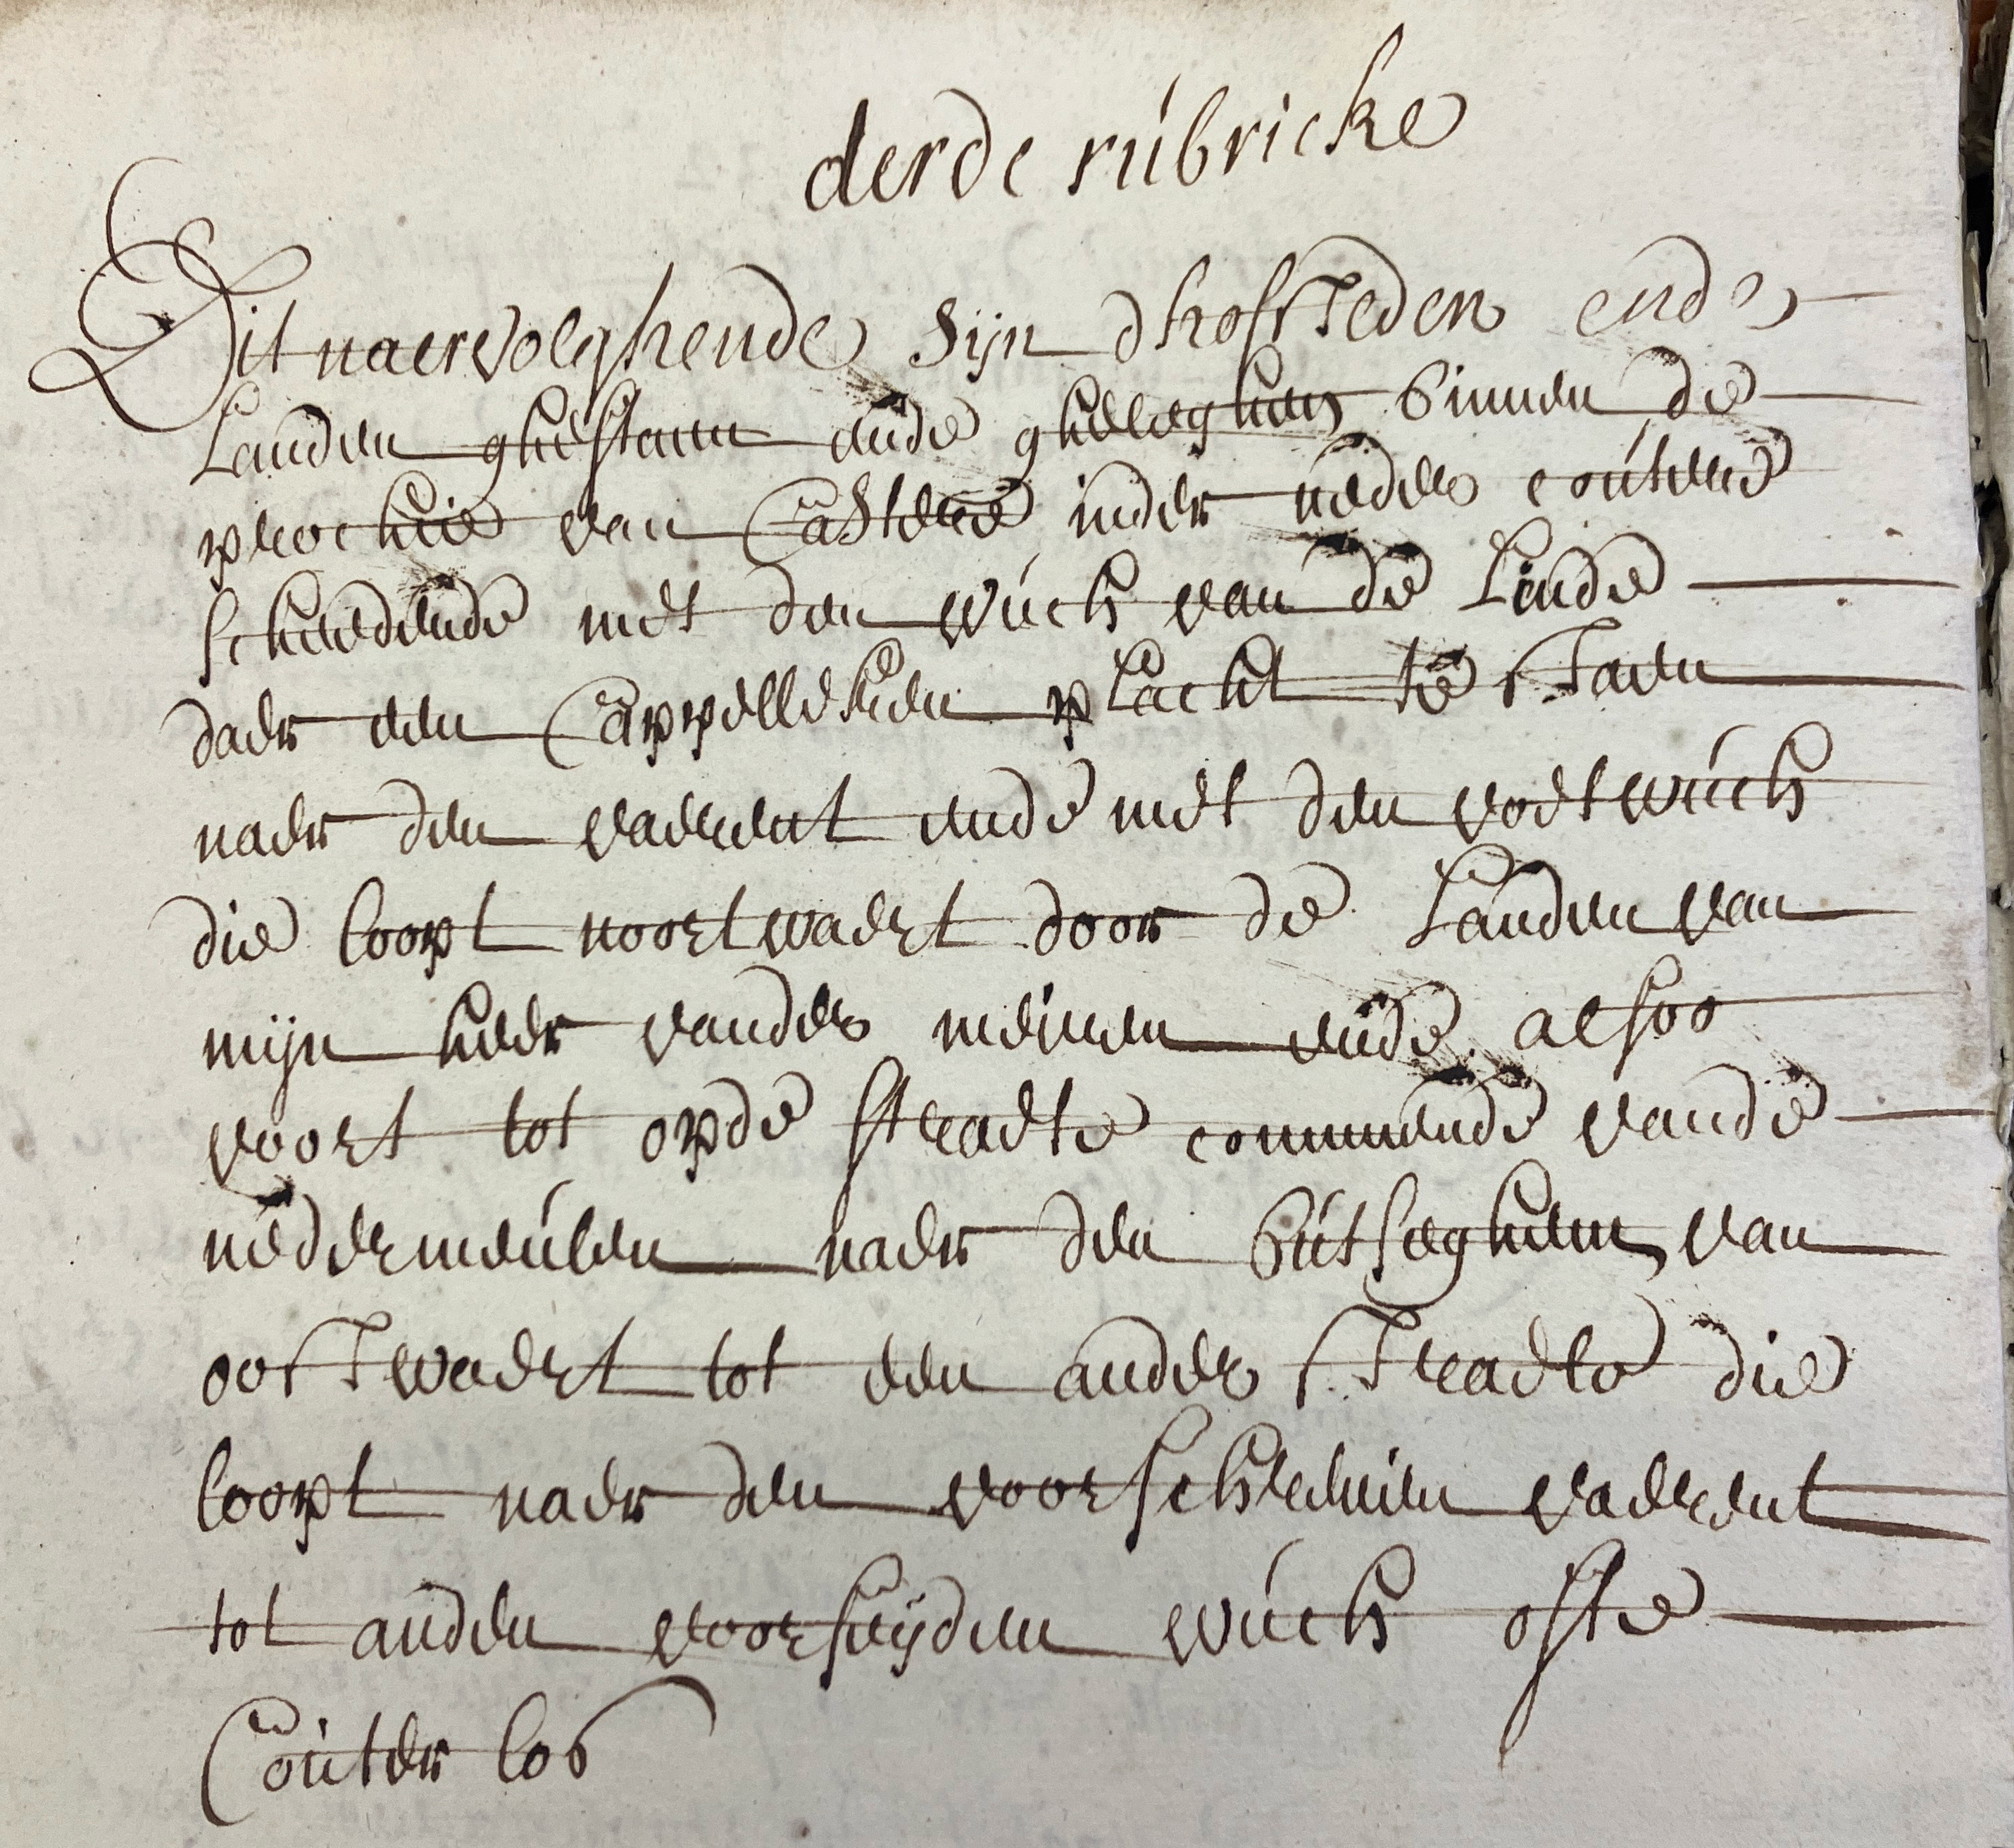 derde rúbricke
Dit naervolghende sijn dhofsteden ende
Landen ghestaen ende gheleghen binnen de
prochie van Castere inder neder coúttere
scheedende met den wúch van de Linde
daer een Cappelleken placht te staen
naer den vaerent ende met den voetwúch
die loopt noortwaert door de Landen van
mijn heer vander meúren ende alsoo
voort tot opde straete commende vande
nedermeúlen naer den bútseghem van
oostwaert tot een ander straete die
loopt naer den voorschreven vaerent
tot anden voorseijden wúch ofte
Coúter los